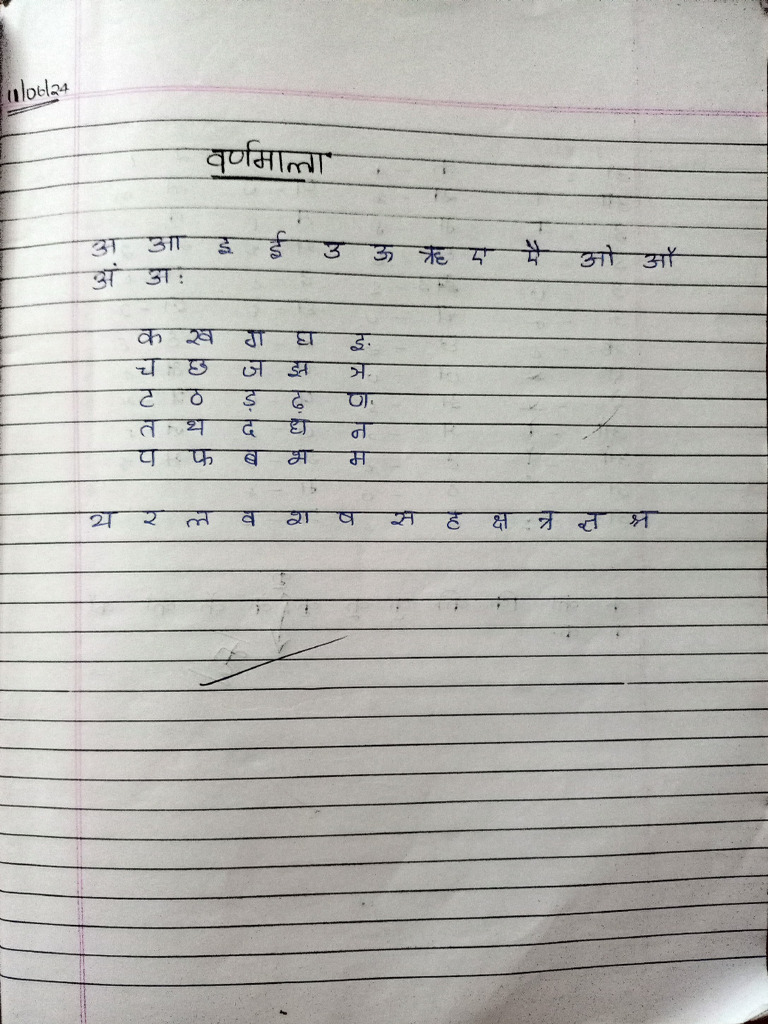 11/06/24
वर्णमाला
अ आ इ ई उ ऊ ऋ ए ऐ ओ ऑ
अं अः
क ख ग घ ङ
च छ ज झ ञ
ट ठ ड़ ढ़ ण
त थ द ध न
प फ ब भ म
य र ल व श ष स ह क्ष त्र ज्ञ श्र